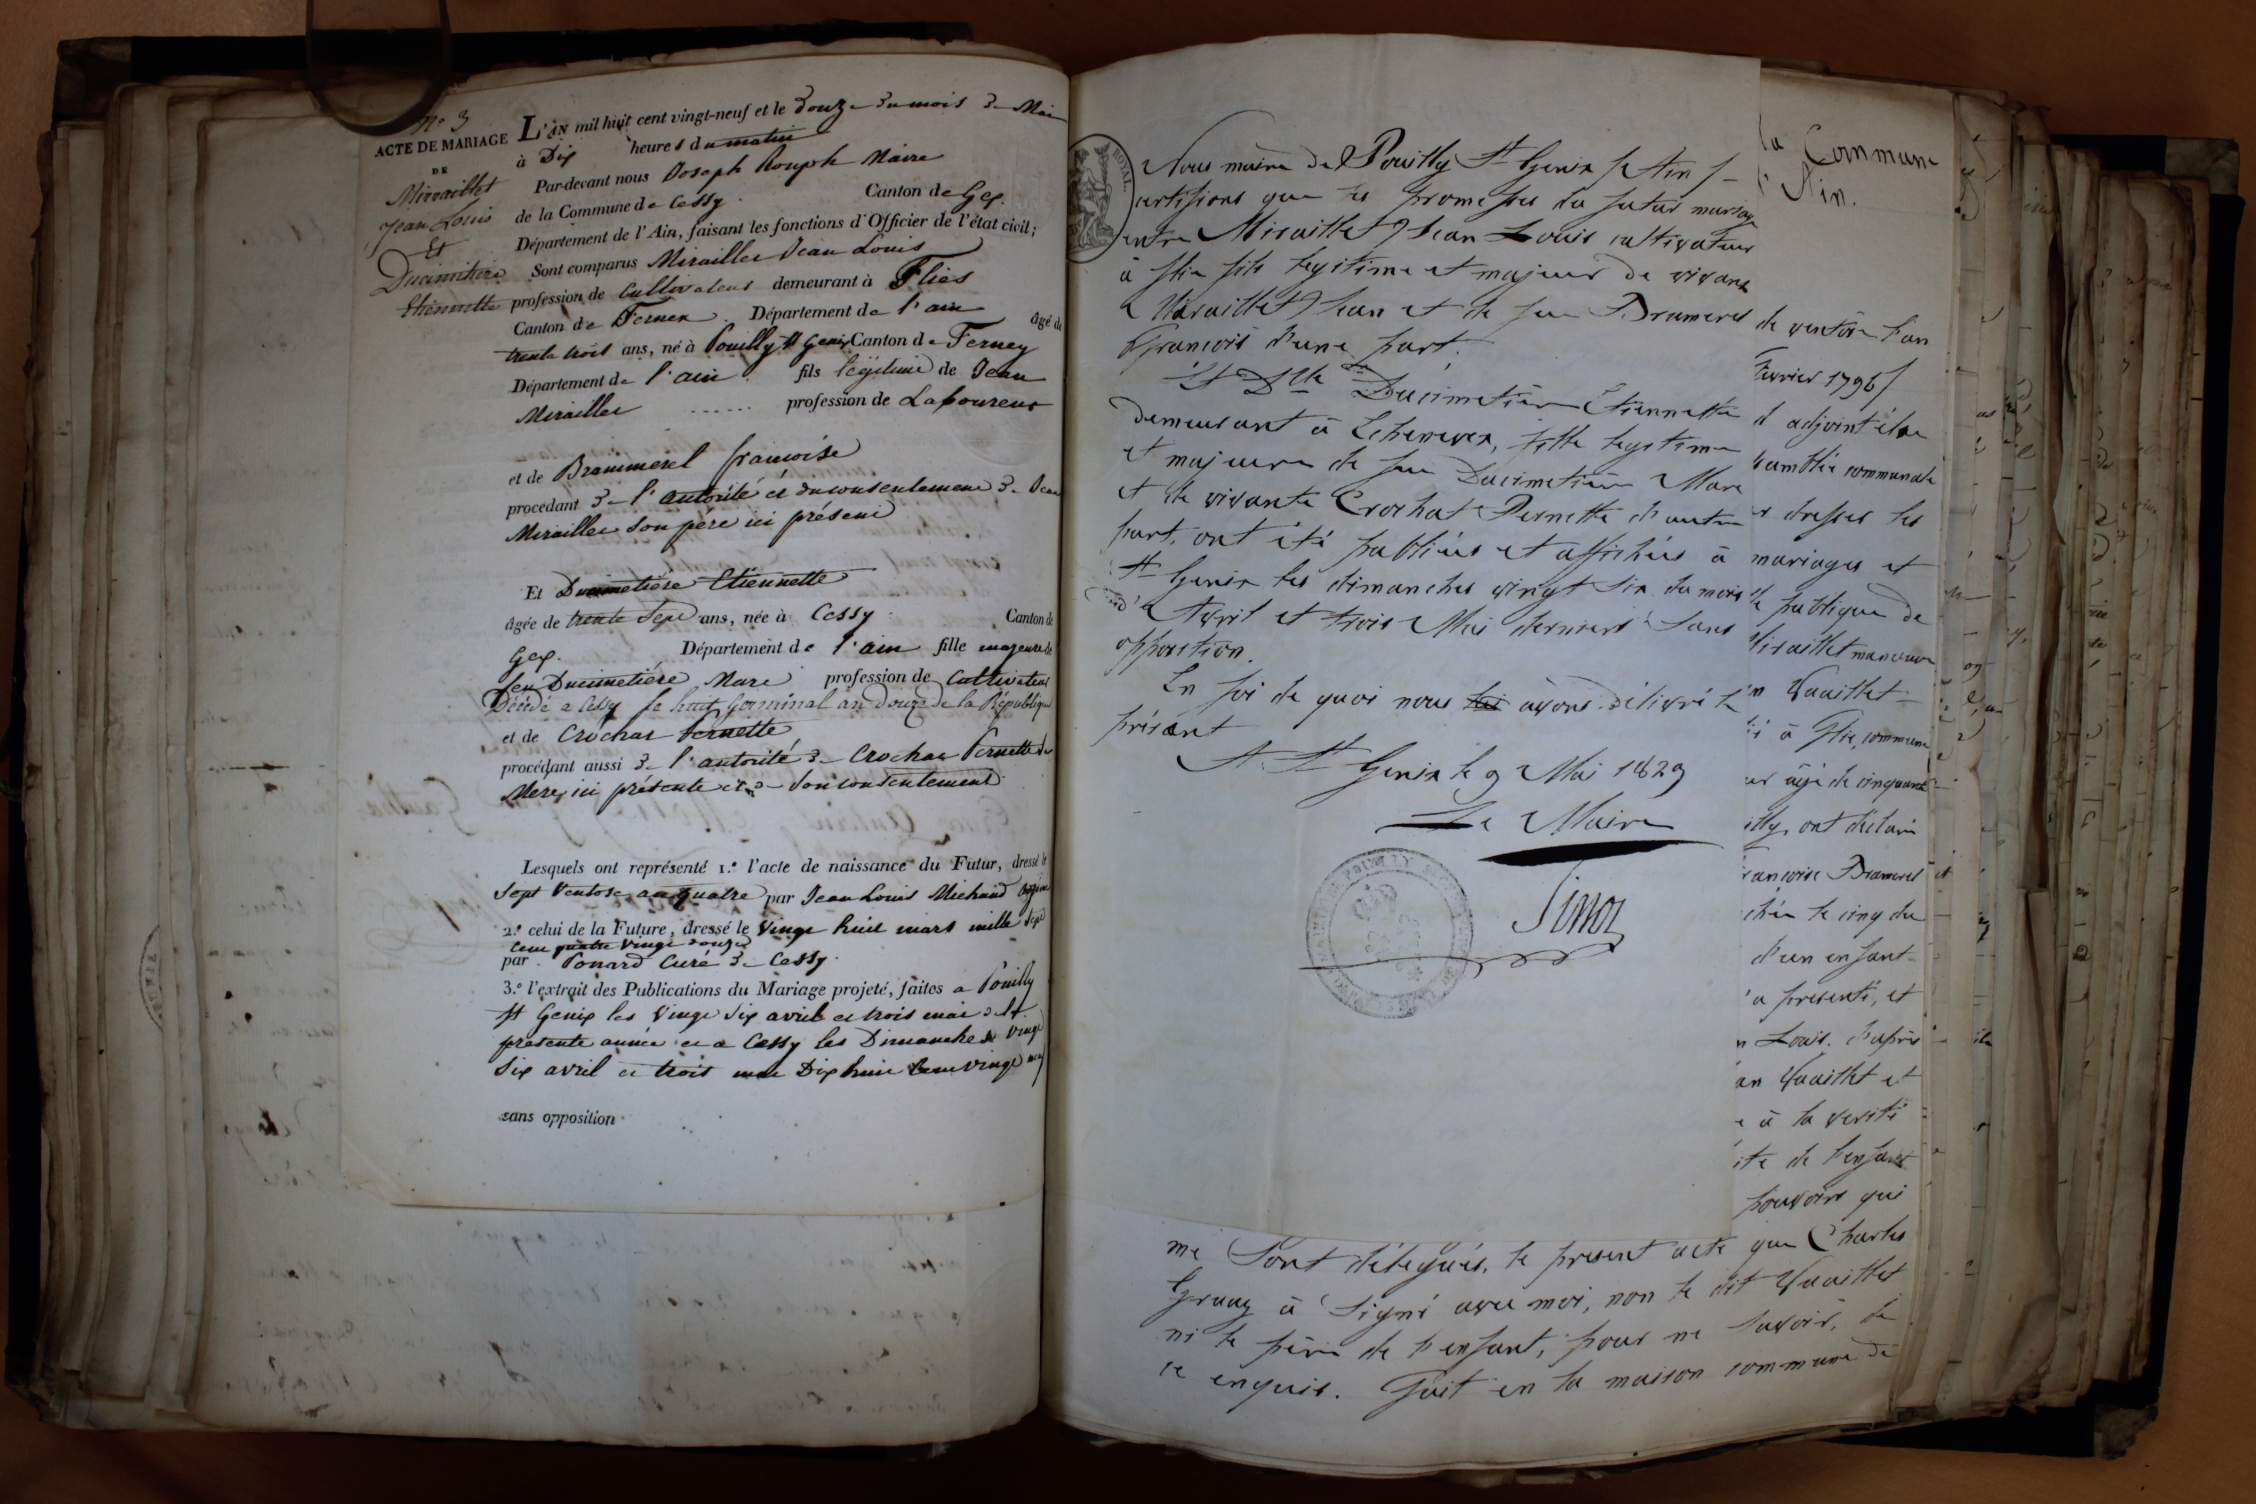 N° 3
ACTE DE MARIAGE
DE
Miraillet
Jean Louis
Et
Ducimetière
Etiennette
L'AN mil huit cent vingt-neuf et le douze du mois de Mai
à Dix heures du matin
Par-devant nous Joseph Rouph Maire
de la Commune de Cessy Canton de Gex.
Département de l'Ain, faisant les fonctions d'Officier de l'état civil;
Sont comparus Mirailles Jean Louis
profession de Cultivateur demeurant à Flies
Canton de Fernex. Département de l'ain âgé de
trente trois ans, né à Pouilly St Genix Canton de Ferney
Département de l'ain fils légitime de Jean
Mirailles ...... profession de Laboureur
et de Brammerel françoise
procédant de l'autorité et du consentement de Jean
Mirailles son père ici présent
Et Ducimetière Etiennette
âgée de trente sept ans, née à Cessy Canton de
Gex. Département de l'ain fille majeure de
feu Ducimetière Marc profession de Cultivateur
Décédé a Cessy le huit Germinal an douze de la République
et de Crochat Pernette
procédant aussi de l'autorité de Crochat Pernette sa
Mere, ici présente et de son consentement
Lesquels ont représenté 1.° l'acte de naissance du Futur, dressé le
sept Ventose an quatre par Jean Louis Michaud
2.° celui de la Future, dressé le vingt huit mars mille sept
cent quatre vingt douze
par Ponard Curé de Cessy.
3.° l'extrait des Publications du Mariage projeté, faites a Pouilly
St Genix les vingt six avril et trois mai de la
presente année et a Cessy les Dimanches vingt
six avril et trois mai Dix huit cent vingt neuf
sans opposition
ROYAL
Nous maire de Pouilly St Genix (Ain)
certifions que les promesses du futur mariage
entre Miraillet Jean Louis cultivateur
à flie fils legitime et majeur de vivant
Miraillet Jean et de feu Brameret
Françoise d'une part.
Et Dlle Ducimetière Etiennette
demeurant à Echenevex, fille legitime
et majeure de feu Ducimetière Marc
et de vivante Crochat Pernette d'autre
part, ont été publiées et affichées à
St Genix les dimanches vingt six du mois
d'Avril et trois Mai derniers sans
opposition.
En foi de quoi nous avons délivré le
présent
A St Genix le 9 Mai 1829
Le Maire
la Commune
l'Ain.
de ventôse l'an
Fevrier 1796/
adjoint élu
communale
dresser les
mariages et
publique de
Miraillet manœuvre
Vuaillet
à Flie, commune
âgé de cinquante
ont déclaré
Françoise Brameret
le cinq du
d'un enfant
a presenté, et
Louis. d'après
Vuaillet et
à la verité
de l'enfant
pouvoirs qui
me sont délégués, le present acte que Charles
Gruaz à signé avec moi, non le dit Vuaillet
ni le père de l'enfant, pour ne savoir, de
ce enquis. Fait en la maison commune de